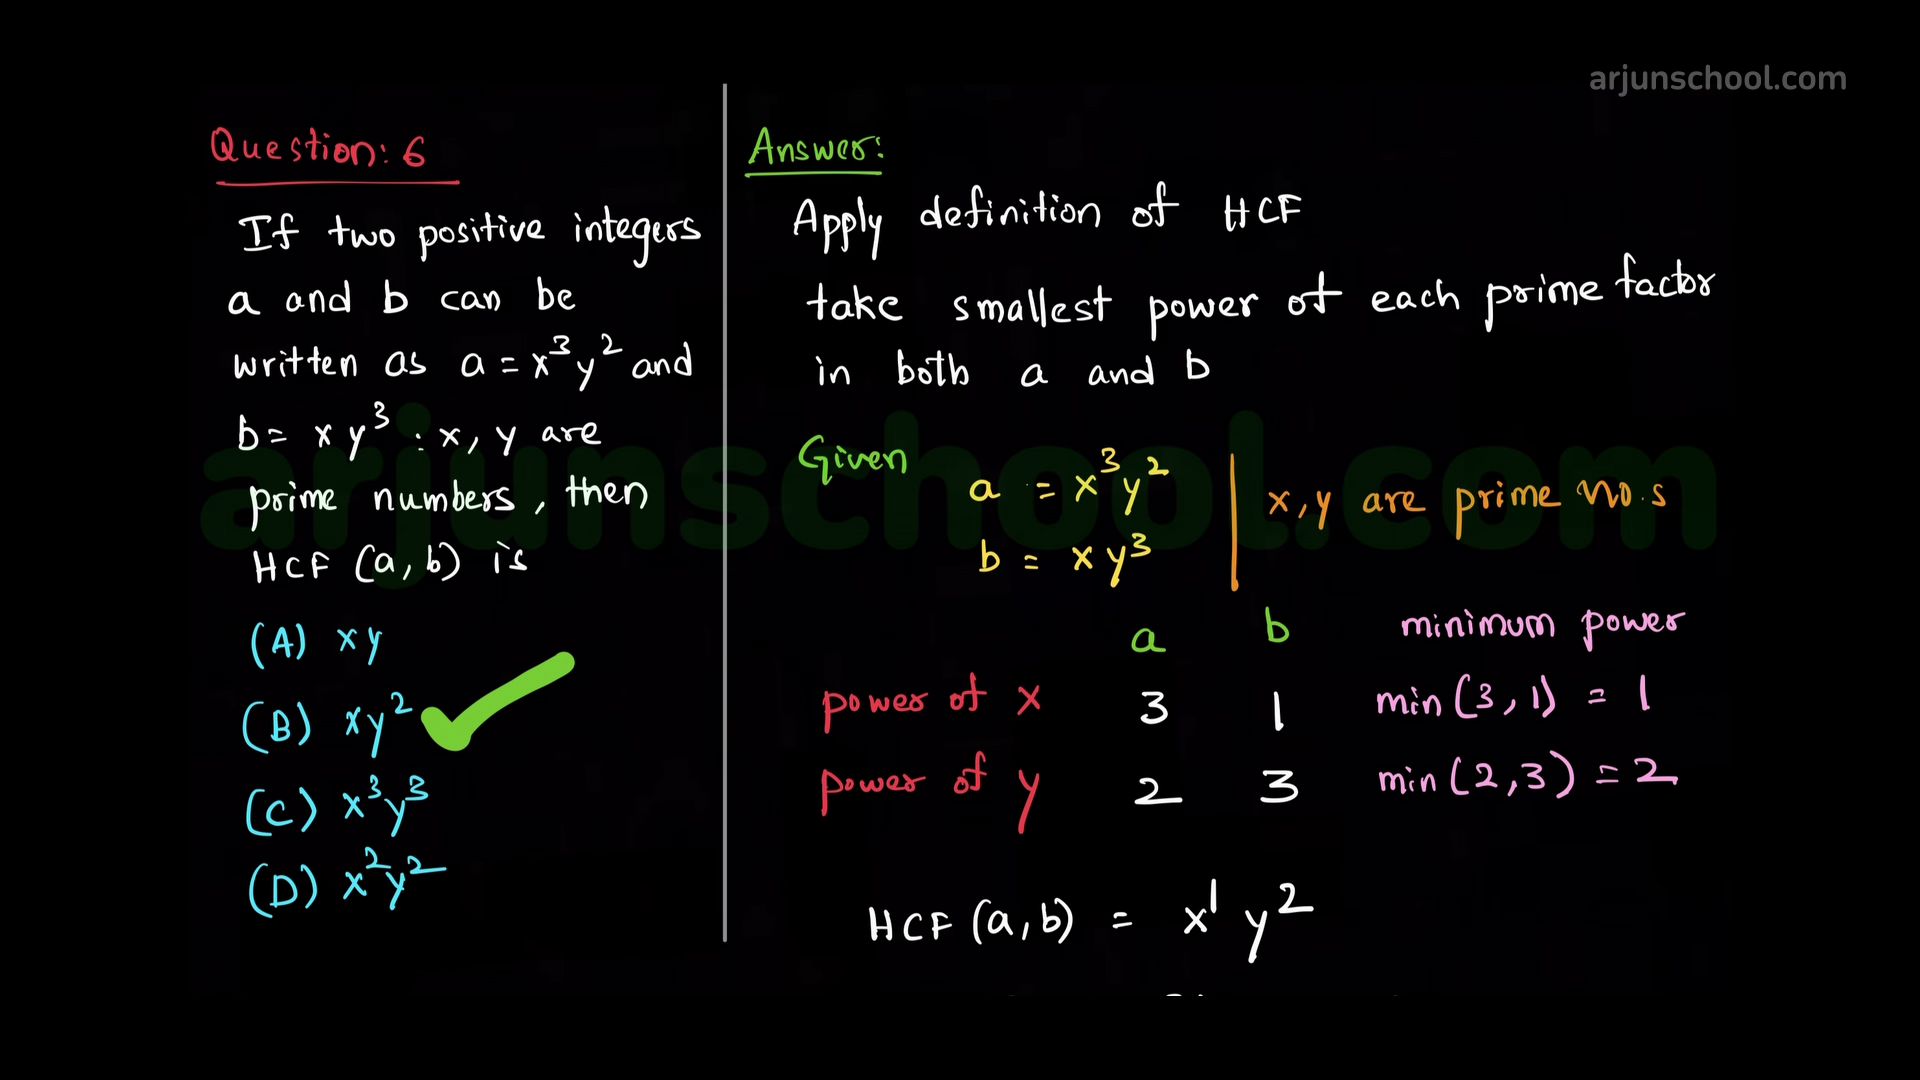 arjunschool.com
Question: 6
If two positive integers
a and b can be
written as a = x³y² and
b = xy³ : x, y are
prime numbers, then
HCF (a, b) is
(A) xy
(B) xy²
(C) x³y³
(D) x²y²
Answer:
Apply definition of HCF
take smallest power of each prime factor
in both a and b
Given
a = x³y²
b = xy³
x, y are prime no.s
a b minimum power
power of x 3 1 min(3, 1) = 1
power of y 2 3 min(2, 3) = 2
HCF (a, b) = x¹ y²
arjunschool.com